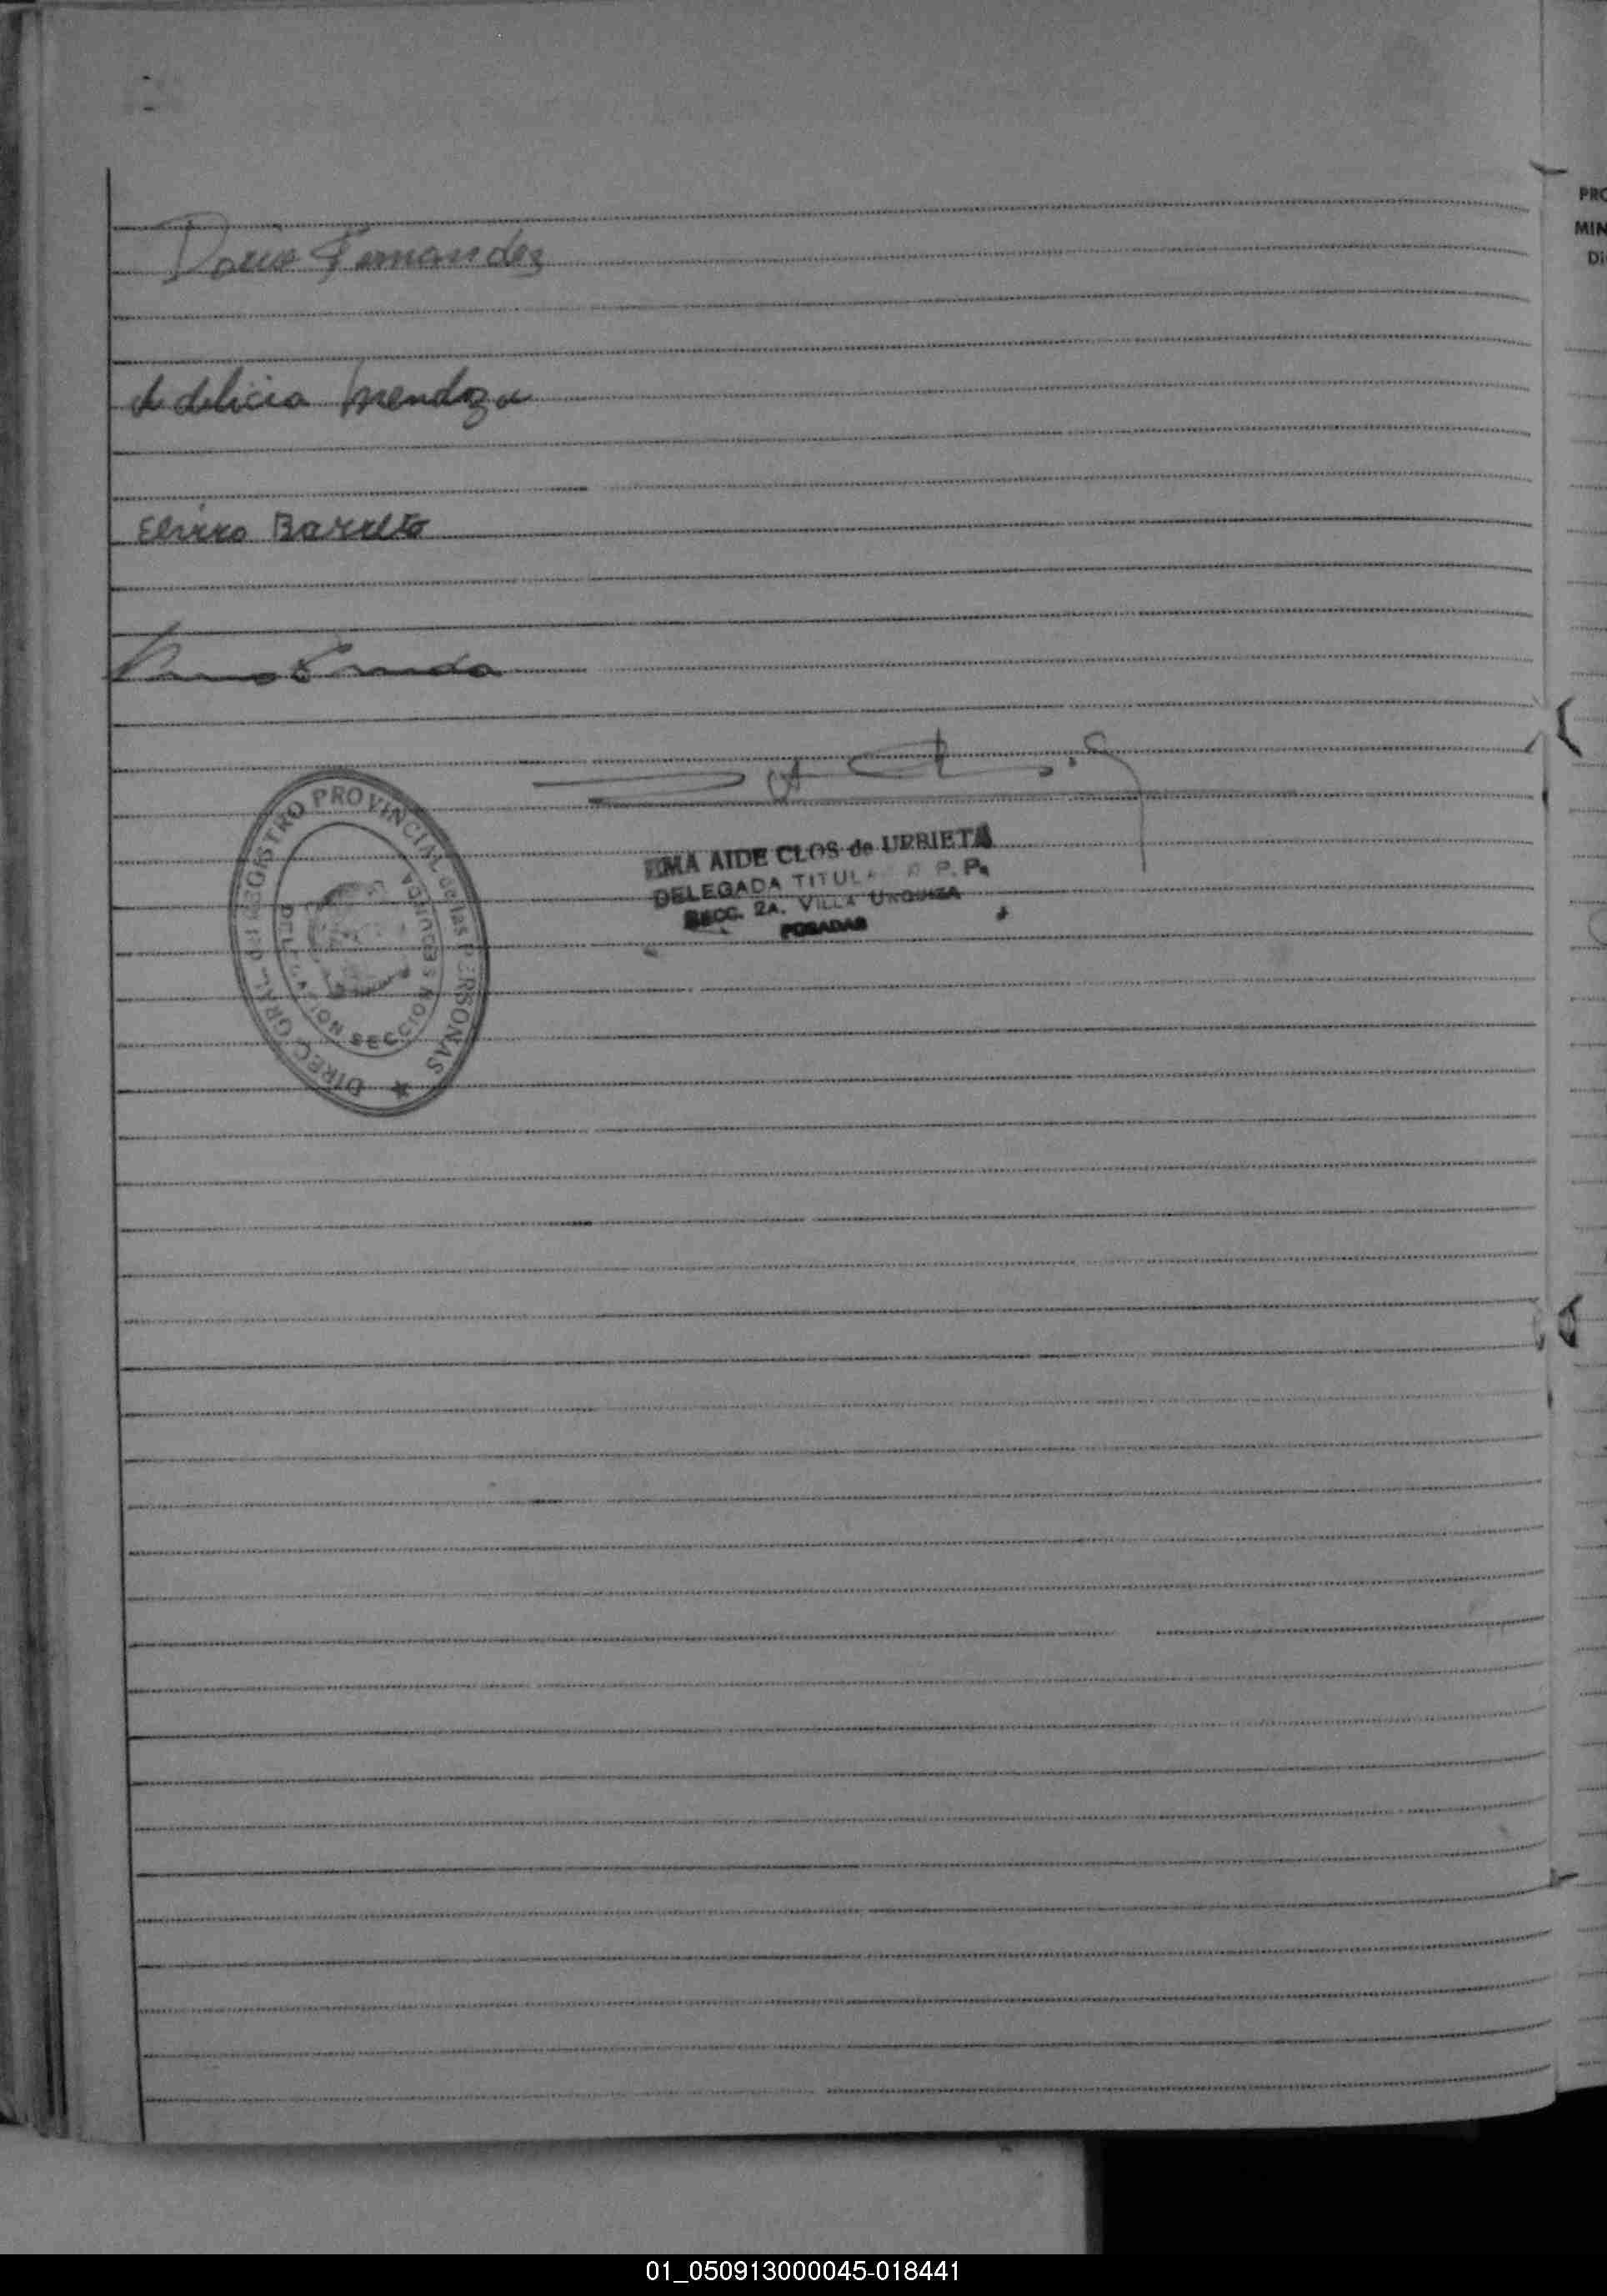 Fernandez
Adelicia Mendoza
Barreto
EMA AIDE CLOS de URRIETA
DELEGADA TITULAR R. P. P.
SECC. 2A. VILLA URQUIZA
POSADAS
DIREC. GRAL. DEL REGISTRO PROVINCIAL de las PERSONAS
DELEGACION SECCION SEGUNDA
PRO
MIN
Di
01_050913000045-018441